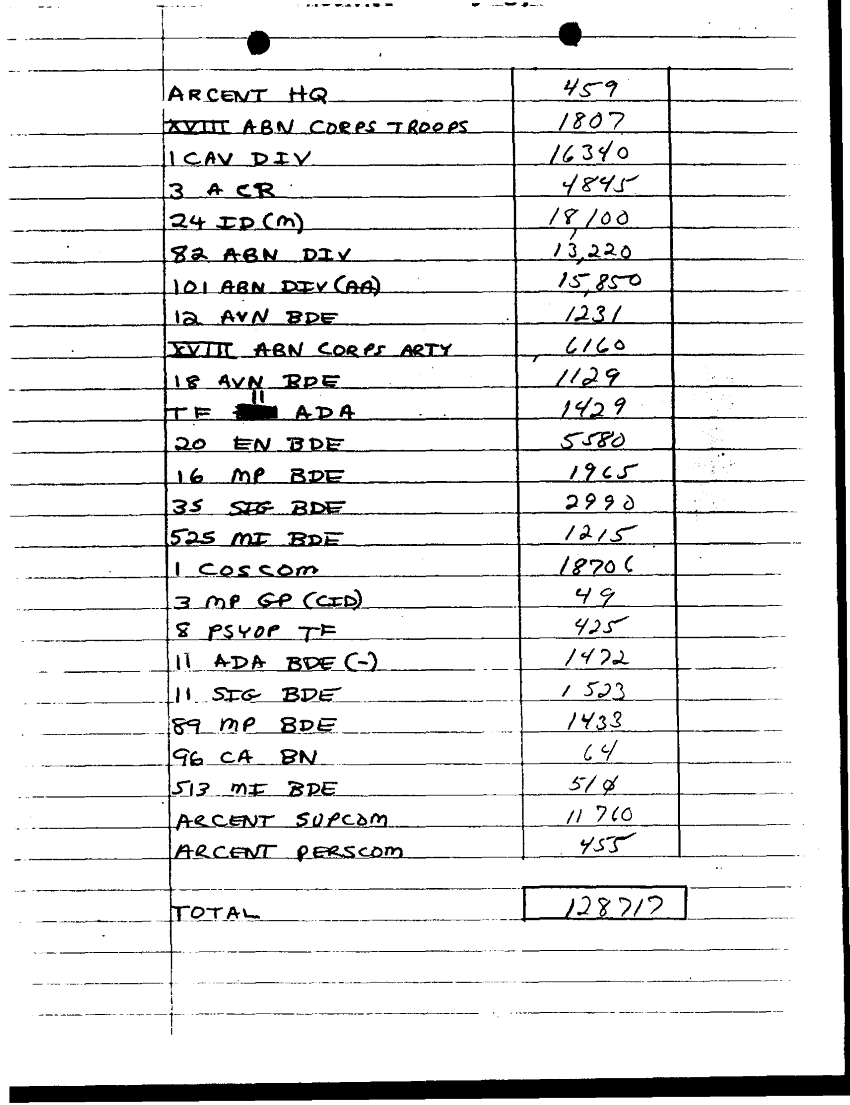 ARCENT HQ 459
XVIII ABN CORPS TROOPS 1807
1 CAV DIV 16340
3 ACR 4845
24 ID (M) 18,100
82 ABN DIV 13,220
101 ABN DIV (AA) 15,850
12 AVN BDE 1231
XVIII ABN CORPS ARTY 6160
18 AVN BDE 1129
TF 11 ADA 1429
20 EN BDE 5580
16 MP BDE 1965
35 SIG BDE 2990
525 MI BDE 1215
1 COSCOM 18706
3 MP GP (CID) 49
8 PSYOP TF 425
11 ADA BDE (-) 1472
11 SIG BDE 1523
89 MP BDE 1433
96 CA BN 64
513 MI BDE 510
ARCENT SUPCOM 11760
ARCENT PERSCOM 455
TOTAL 128717